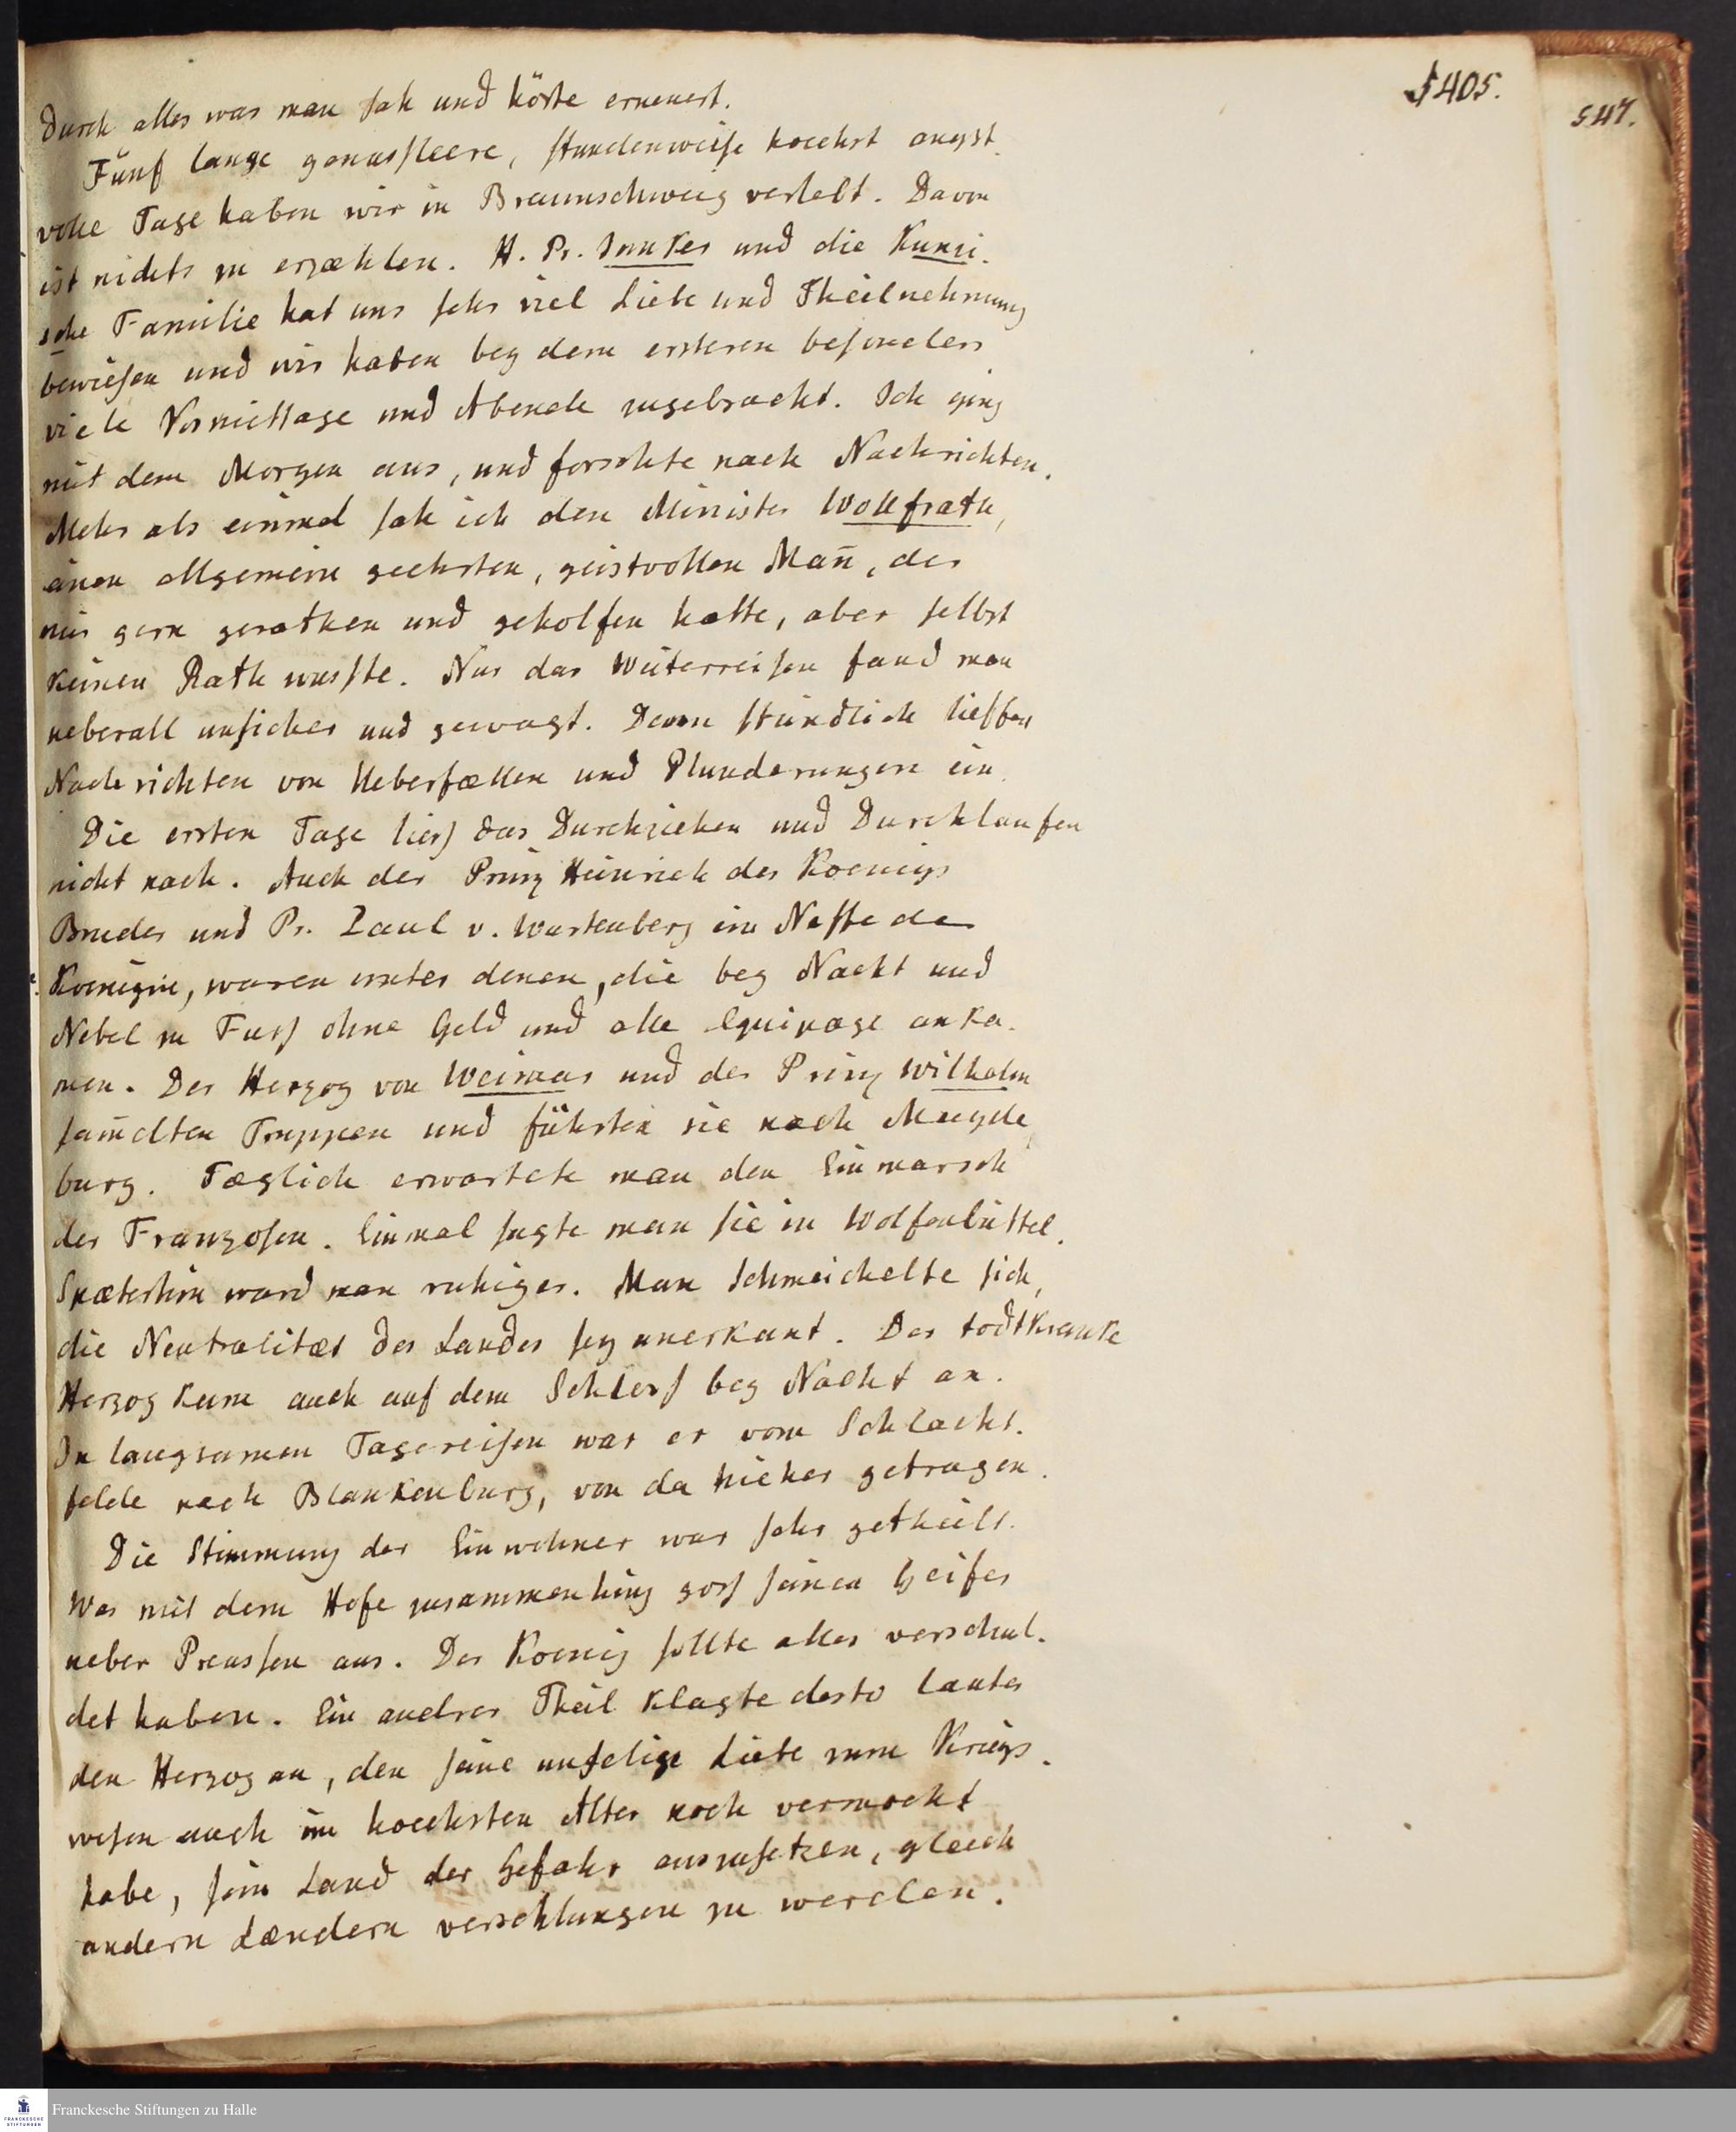 5405.
547.
durch alles was man sah und hörte erneuert.
Fünf lange genussleere, stundenweise hoechst angst-
volle Tage haben wir in Braunschweig verlebt. Davon
ist nichts zu erzæhlen. H. Pr. Junker und die Kunzi-
sche Familie hat uns sehr viel Liebe und Theilnehmung
bewiesen und wir haben bey dem ersteren besonders
viele Vormittage und Abende zugebracht. Ich ging
mit dem Morgen aus, und forschte nach Nachrichten.
Mehr als einmal sah ich den Minister Wollfrath,
einen allgemein geehrten, geistvollen Man̄, der
mir gern gerathen und geholfen hætte, aber selbst
keinen Rath wusste. Nur das Weiterreisen fand man
ueberall unsicher und gewagt. Denn stündlich lieffen
Nachrichten von Ueberfællen und Plunderungen ein.
Die ersten Tage liess das Durchziehen und Durchlaufen
nicht nach. Auch der Prinz Heinrich des Koenigs
Bruder und Pr. Paul v. Wurtenberg ein Neffe der
Koenigin, waren unter denen, die bey Nacht und
Nebel zu Fuss ohne Geld und alle Equipage anka-
men. Der Herzog von Weimar und der Prinz Wilhelm
sam̄elten Truppen und führten sie nach Magde
burg. Tæglich erwartete man den Einmarsch
der Franzosen. Einmal sagte man sie in Wolfenbüttel.
Spæterhin ward man ruhiger. Man schmeichelte sich,
die Neutralitæt des Landes sey anerkant. Der todtkranke
Herzog kam auch auf dem Schloss bey Nacht an.
In langsamen Tagereisen war er vom Schlacht-
felde nach Blankenburg, von da hieher getragen.
Die Stimmung der Einwohner war sehr getheilt.
Was mit dem Hofe zusammenhing goss seinen Geifer
ueber Preussen aus. Der Koenig sollte alles verschul-
det haben. Ein andrer Theil klagte desto lauter
den Herzog an, den seine unselige Liebe zum Kriegs-
wesen auch im hoechsten Alter noch vermocht
habe, sein Land der Gefahr auszusetzen, gleich
andern Lændern verschlungen zu werden.
FRANCKESCHE
STIFTUNGEN
Franckesche Stiftungen zu Halle